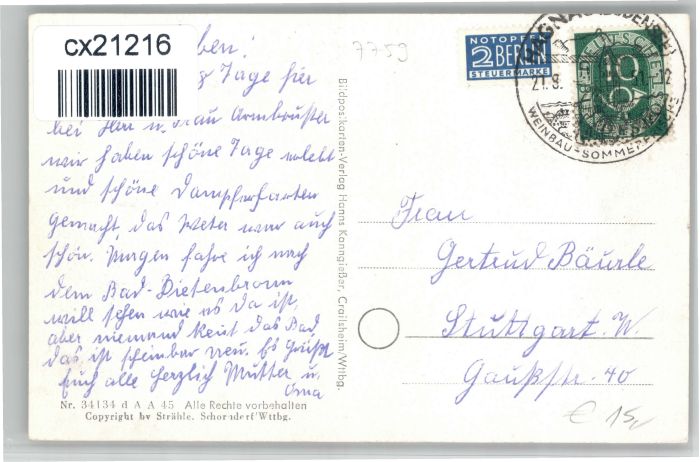 cx21216
7759
NOTOPFER
2 BERLIN
STEUERMARKE
DEUTSCHE
10
21.9.
WEINBAU-SOMMERFRISCHE
ben!
Tage hier
bei Herr u. Frau Armbruster
wir haben schöne Tage erlebt
und schöne Dampferfarten
gemacht, das Weter war auch
schön. Morgen fahre ich nach
dem Bad-Dietenbronn
will sehen wie es da ist,
aber niemand kent das Bad,
das ist scheinbar neu. Es Grüßt
Euch alle herzlich Mutter u.
Oma
Nr. 34134 d A A 45 Alle Rechte vorbehalten
Copyright by Strähle. Schorndorf/Wttbg.
Bildpostkarten-Verlag Hanns Kanngießer, Crailsheim/Wttbg.
Frau
Gertrud Bäurle
Stuttgart. W.
Gaußstr. 40
€ 15,